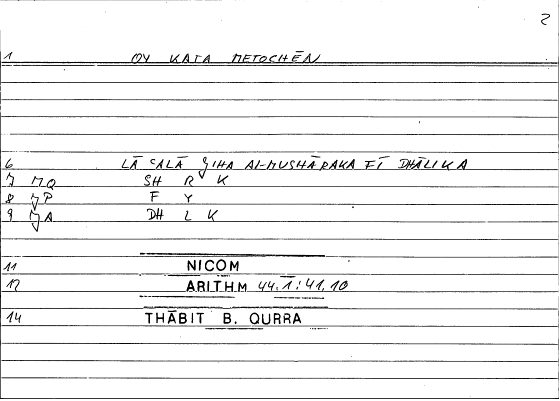 2
1 OY KATA METOCHĒN
6 LĀ ʿALĀ ǦIHA Al-MUSHĀRAKA FĪ DHĀLIKA
7 MQ SH R K
8 P F Y
9 A DH L K
11 NICOM
12 ARITH.M 44.1:41,10
14 THĀBIT B. QURRA